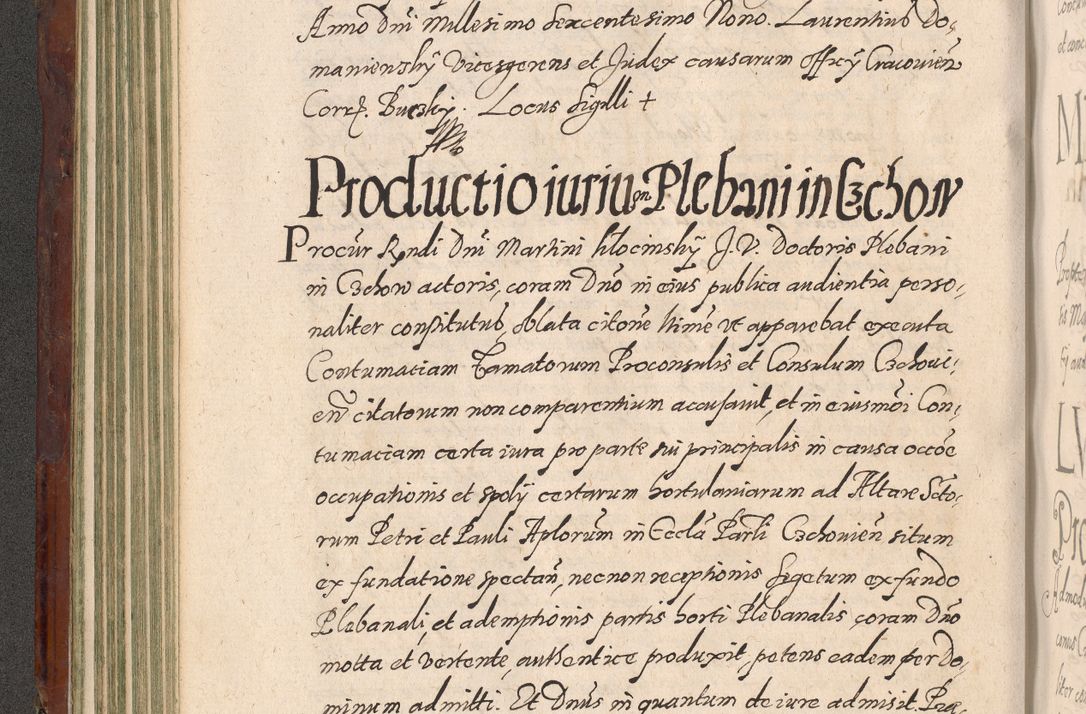 Anno Dni Millesimo Sexcentesimo Nono. Laurentius Do,
manienshy Vicesgerens et Judex causarum Offcy Cracouien
Locus Sigilli +
Productio iurium Plebani in Czchow
Procur Rndi Dni Martini Klocinshy J. V. Doctoris Plebani
in Czchow actoris, coram Dno in eius publica audientia perso,
naliter constitutus, oblata citone hime vt apparebat executa
Contumaciam famatorum Proconsulis et Consulum Czchoui,
en citatorum non comparentium accusauit, et in eiusmoi Con,
tumaciam certa iura pro parte sui principalis in causa occoe
occupationis et spoly certarum hortulaniarum ad Altare Scto,
rum Petri et Pauli Aplorum in Eccla Parli Czchouien situm
ex fundatione spectan, necnon receptionis segetum ex fundo
Plebanali, et ademptionis partis horti Plebanalis coram Dno
mota et vertente, authentice produxit, petens eadem per Do,
minum admitti. Et Dnus in quantum de iure admisit. Prae,